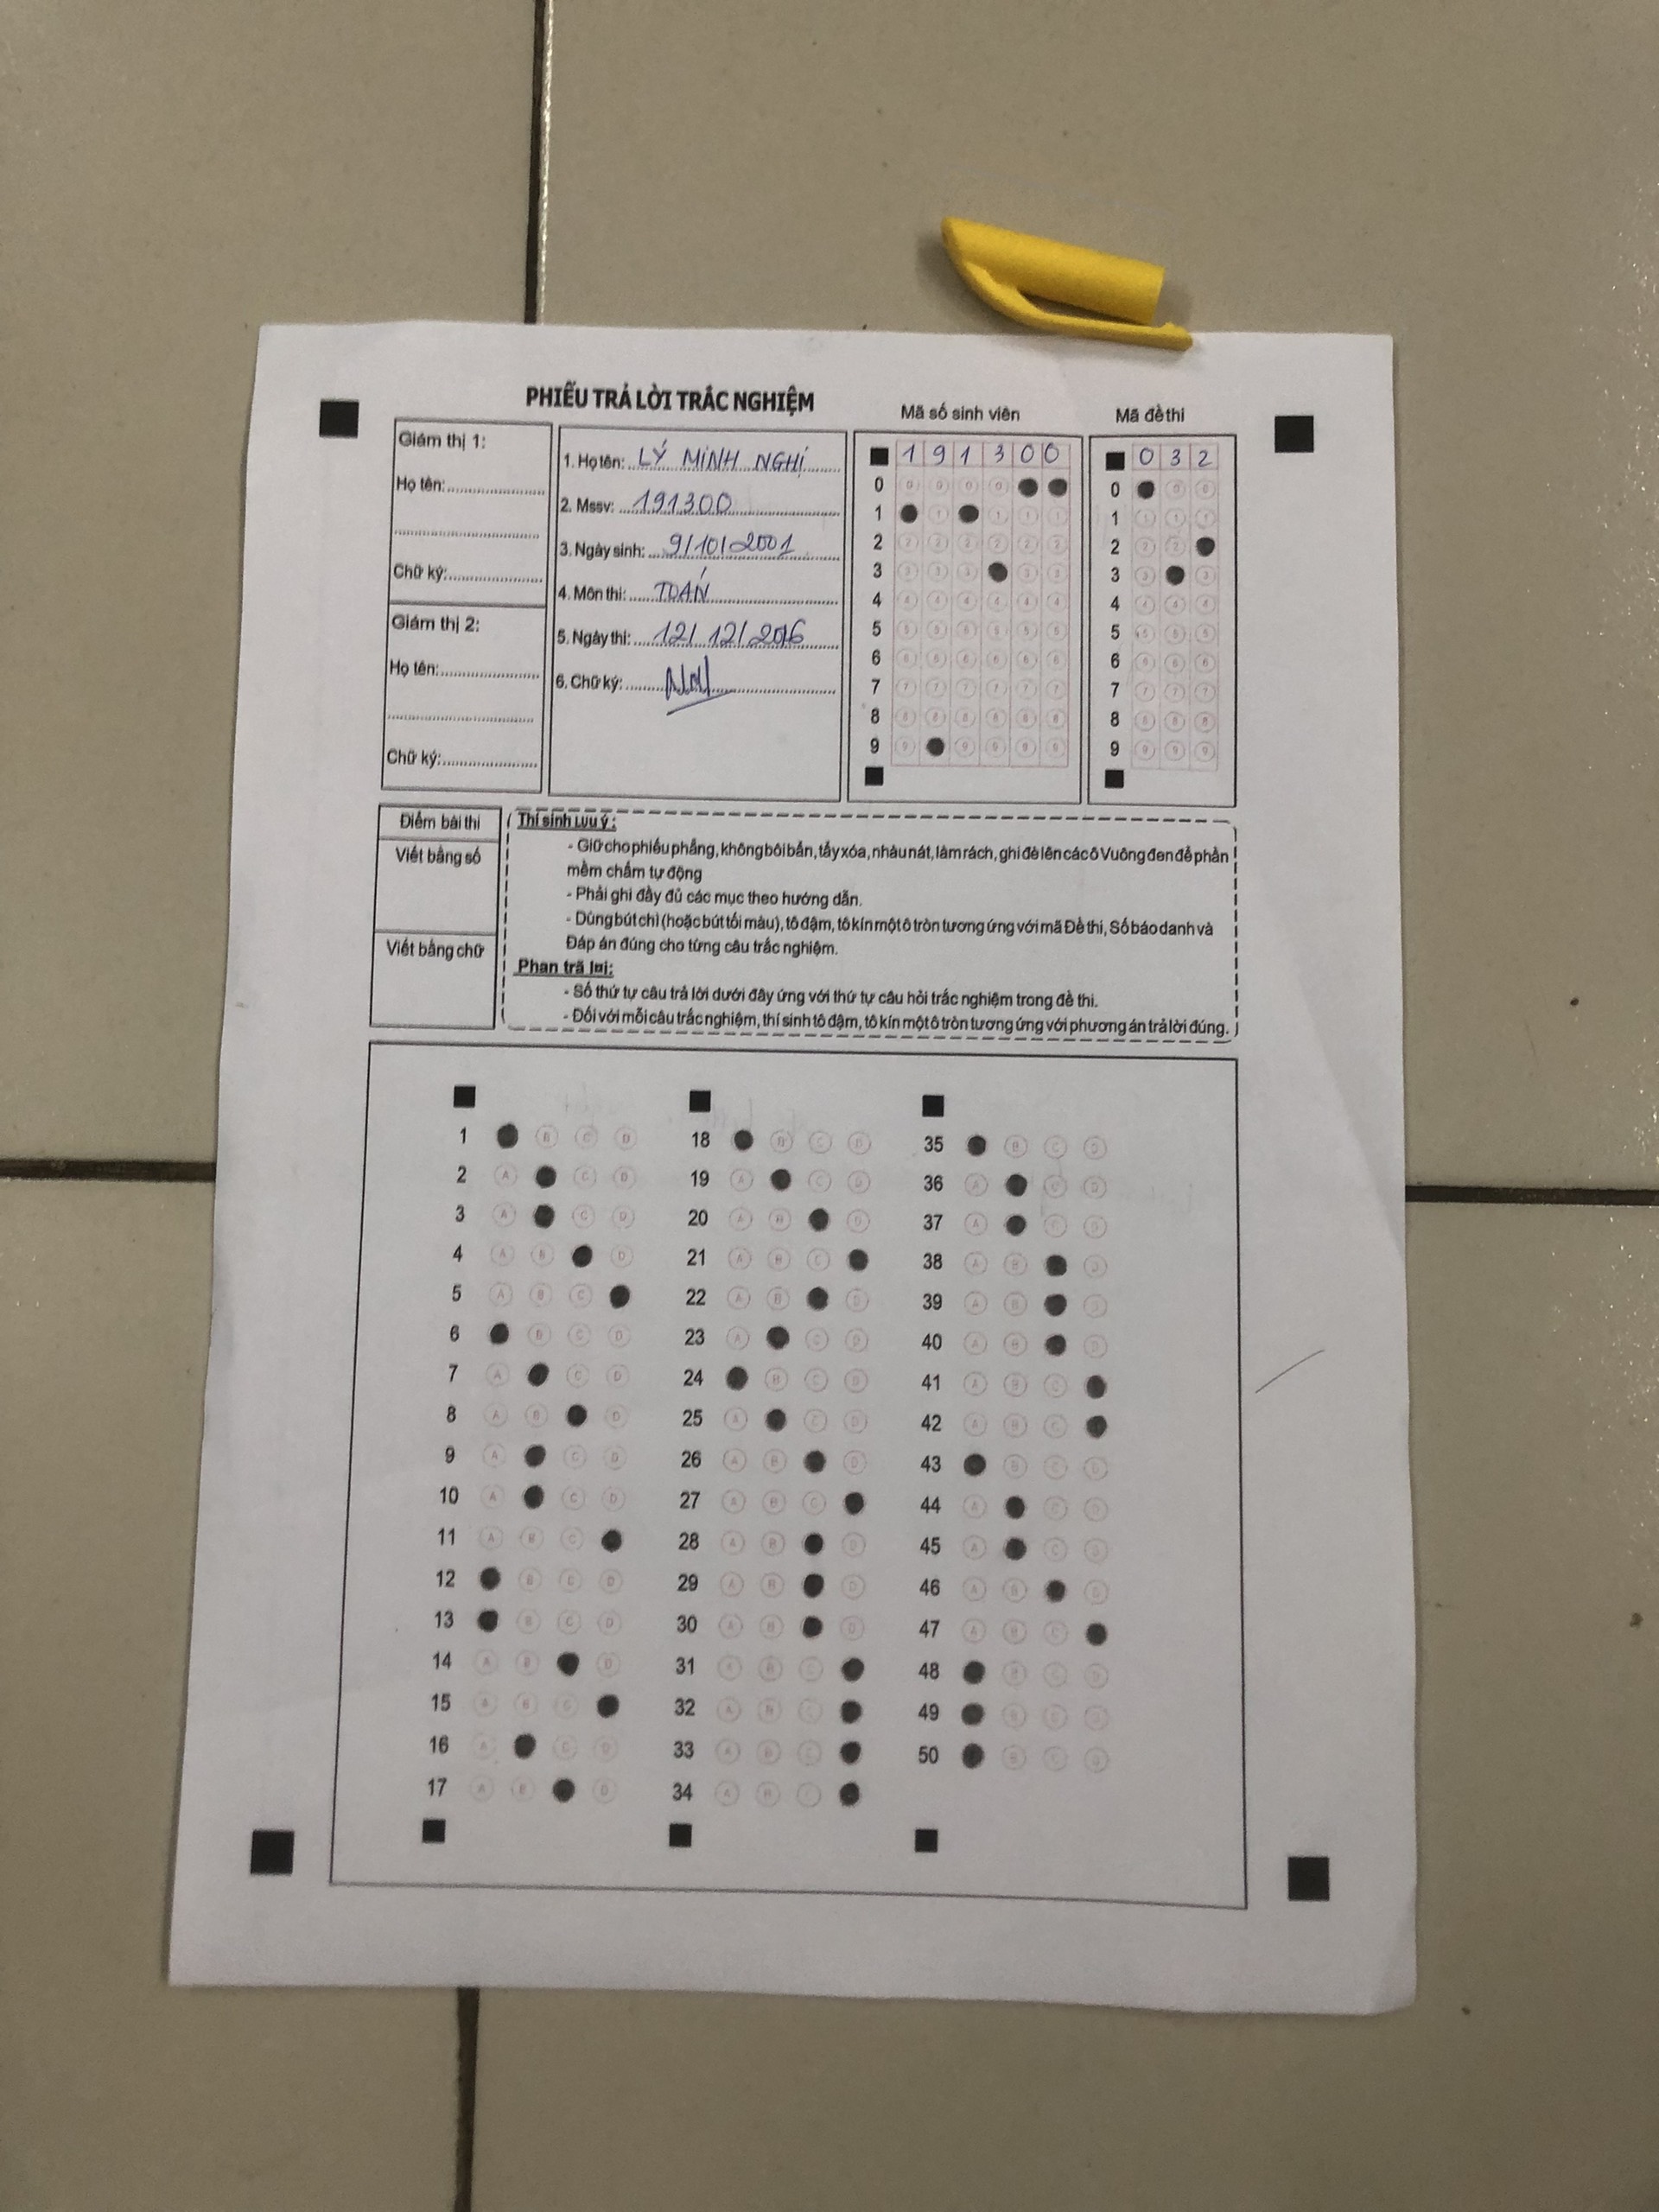 PHIẾU TRẢ LỜI TRẮC NGHIỆM
Mã số sinh viên
Mã đề thi
Giám thị 1:
Họ tên:
Chữ ký:
Giám thị 2:
Họ tên:
Chữ ký:
1. Họ tên: LÝ MINH NGHỊ
2. Mssv: 191300
3. Ngày sinh: 9/10/2001
4. Môn thi: TOÁN
5. Ngày thi: 12/12/2016
6. Chữ ký:
1 9 1 3 0 0
0
1
2
3
4
5
6
7
8
9
0 3 2
0
1
2
3
4
5
6
7
8
9
Điểm bài thi
Viết bằng số
Viết bằng chữ
Thí sinh Lưu ý:
- Giữ cho phiếu phẳng, không bôi bẩn, tẩy xóa, nhàu nát, làm rách, ghi đè lên các ô Vuông đen để phần
mềm chấm tự động
- Phải ghi đầy đủ các mục theo hướng dẫn.
- Dùng bút chì (hoặc bút tối màu), tô đậm, tô kín một ô tròn tương ứng với mã Đề thi, Số báo danh và
Đáp án đúng cho từng câu trắc nghiệm.
Phan trã lơi:
- Số thứ tự câu trả lời dưới đây ứng với thứ tự câu hỏi trắc nghiệm trong đề thi.
- Đối với mỗi câu trắc nghiệm, thí sinh tô đậm, tô kín một ô tròn tương ứng với phương án trả lời đúng.
1 B C D
2 A C D
3 A C D
4 A B D
5 A B C
6 B C D
7 A C D
8 A B D
9 A C D
10 A C D
11 A B C
12 B C D
13 B C D
14 A B D
15 A B C
16 A C D
17 A B D
18 B C D
19 A C D
20 A B D
21 A B C
22 A B D
23 A C D
24 B C D
25 A C D
26 A B D
27 A B C
28 A B D
29 A B D
30 A B D
31 A B C
32 A B C
33 A B C
34 A B C
35 B C D
36 A C D
37 A C D
38 A B D
39 A B D
40 A B D
41 A B C
42 A B C
43 B C D
44 A C D
45 A C D
46 A B D
47 A B C
48 B C D
49 B C D
50 B C D